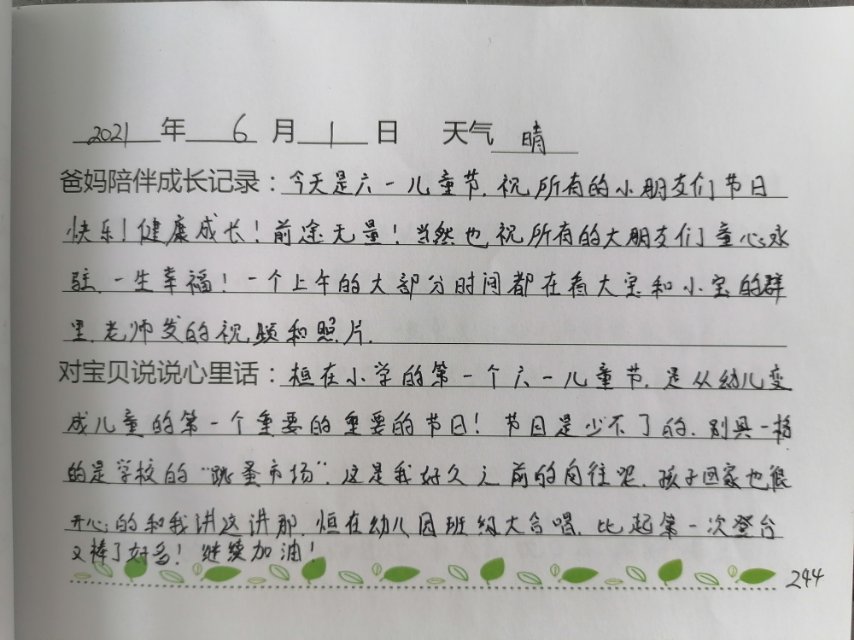 2021年6月1日 天气晴
爸妈陪伴成长记录：今天是六一儿童节，祝所有的小朋友们节日
快乐！健康成长！前途无量！当然也祝所有的大朋友们童心永
驻，一生幸福！一个上午的大部分时间都在看大宝和小宝的群
里，老师发的视频和照片，
对宝贝说说心里话：桓在小学的第一个六一儿童节，是从幼儿变
成儿童的第一个重要的重要的节日！节目是少不了的，别具一格
的是学校的“跳蚤市场”，这是我好久之前的向往呢，孩子回家也很
开心的和我讲这讲那，恒在幼儿园班级大合唱，比起第一次登台
又棒了好多！继续加油！
244